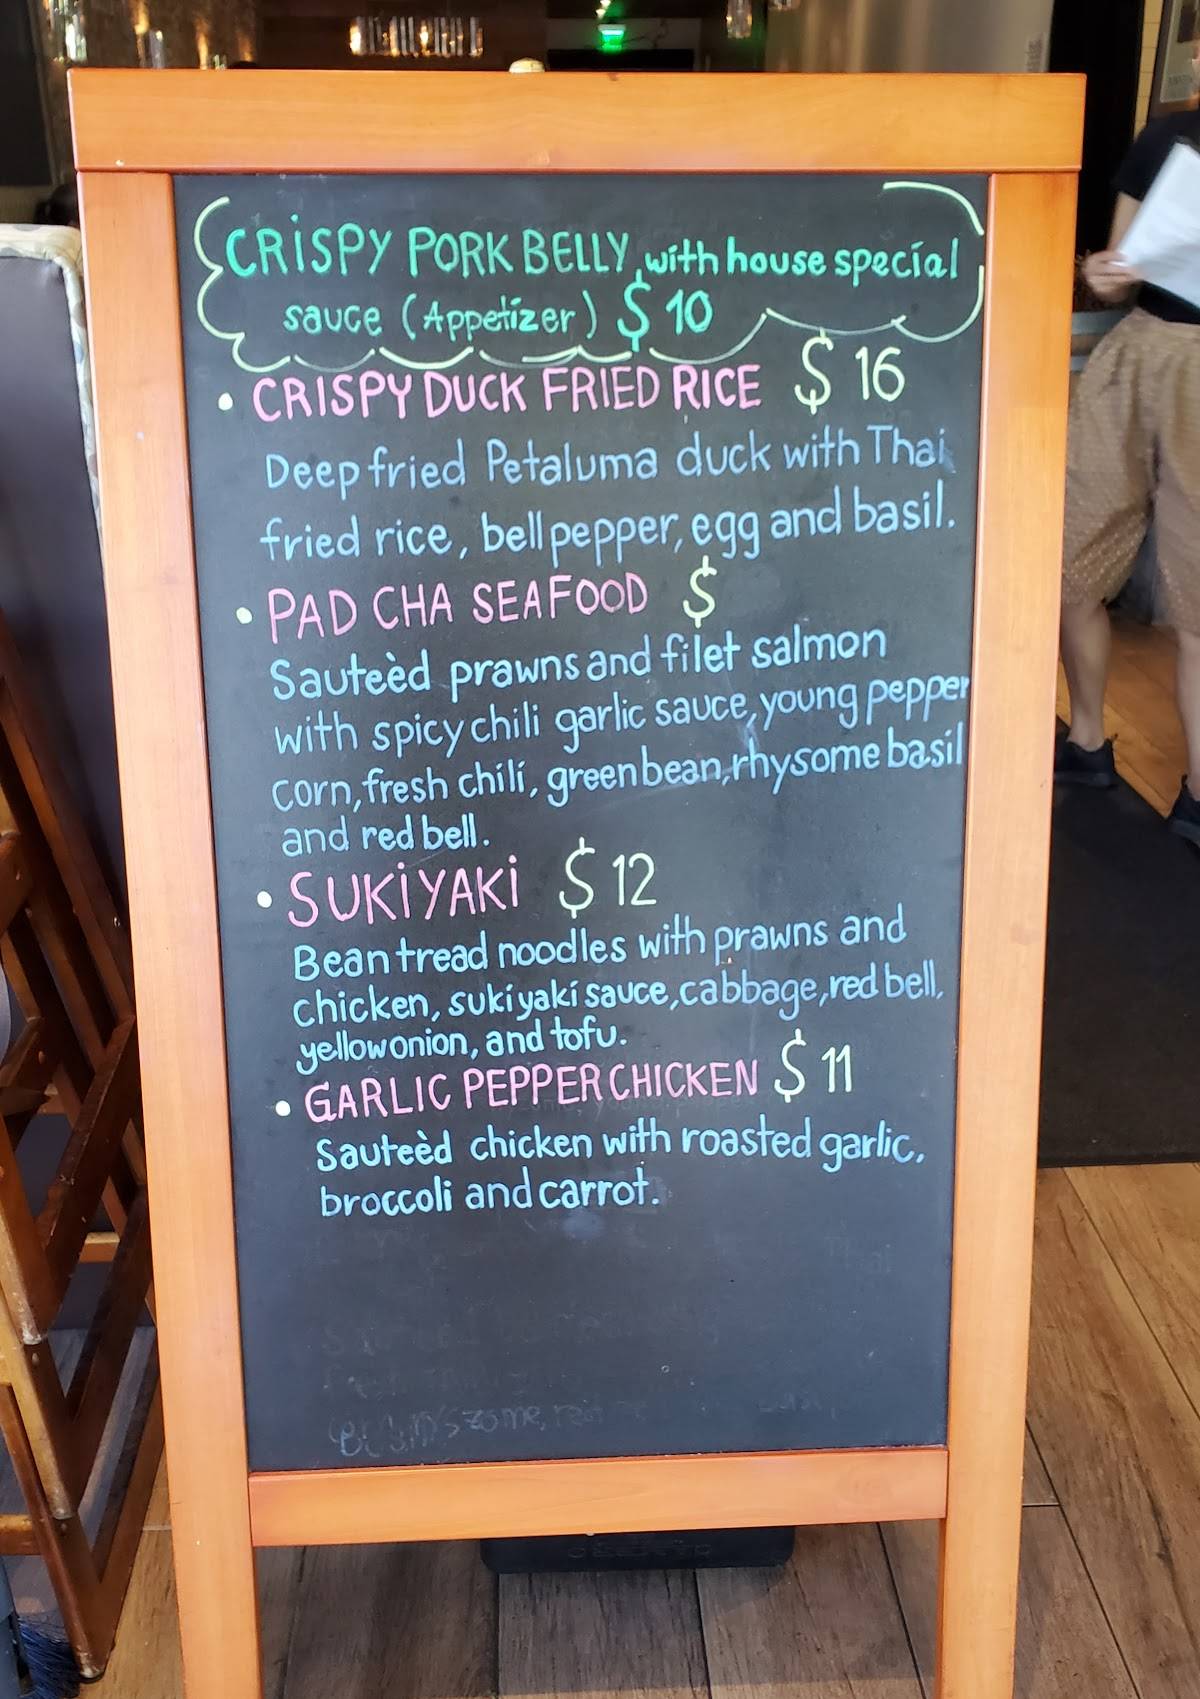 CRISPY PORK BELLY, with house special
sauce (Appetizer) $10
• CRISPY DUCK FRIED RICE $16
Deep fried Petaluma duck with Thai
fried rice, bell pepper, egg and basil.
• PAD CHA SEAFOOD $
Sauteèd prawns and filet salmon
with spicy chili garlic sauce, young pepper
corn, fresh chili, green bean, rhysome basil
and red bell.
• SUKIYAKI $12
Bean tread noodles with prawns and
chicken, sukiyaki sauce, cabbage, red bell,
yellow onion, and tofu.
• GARLIC PEPPER CHICKEN $11
Sauteèd chicken with roasted garlic,
broccoli and carrot.